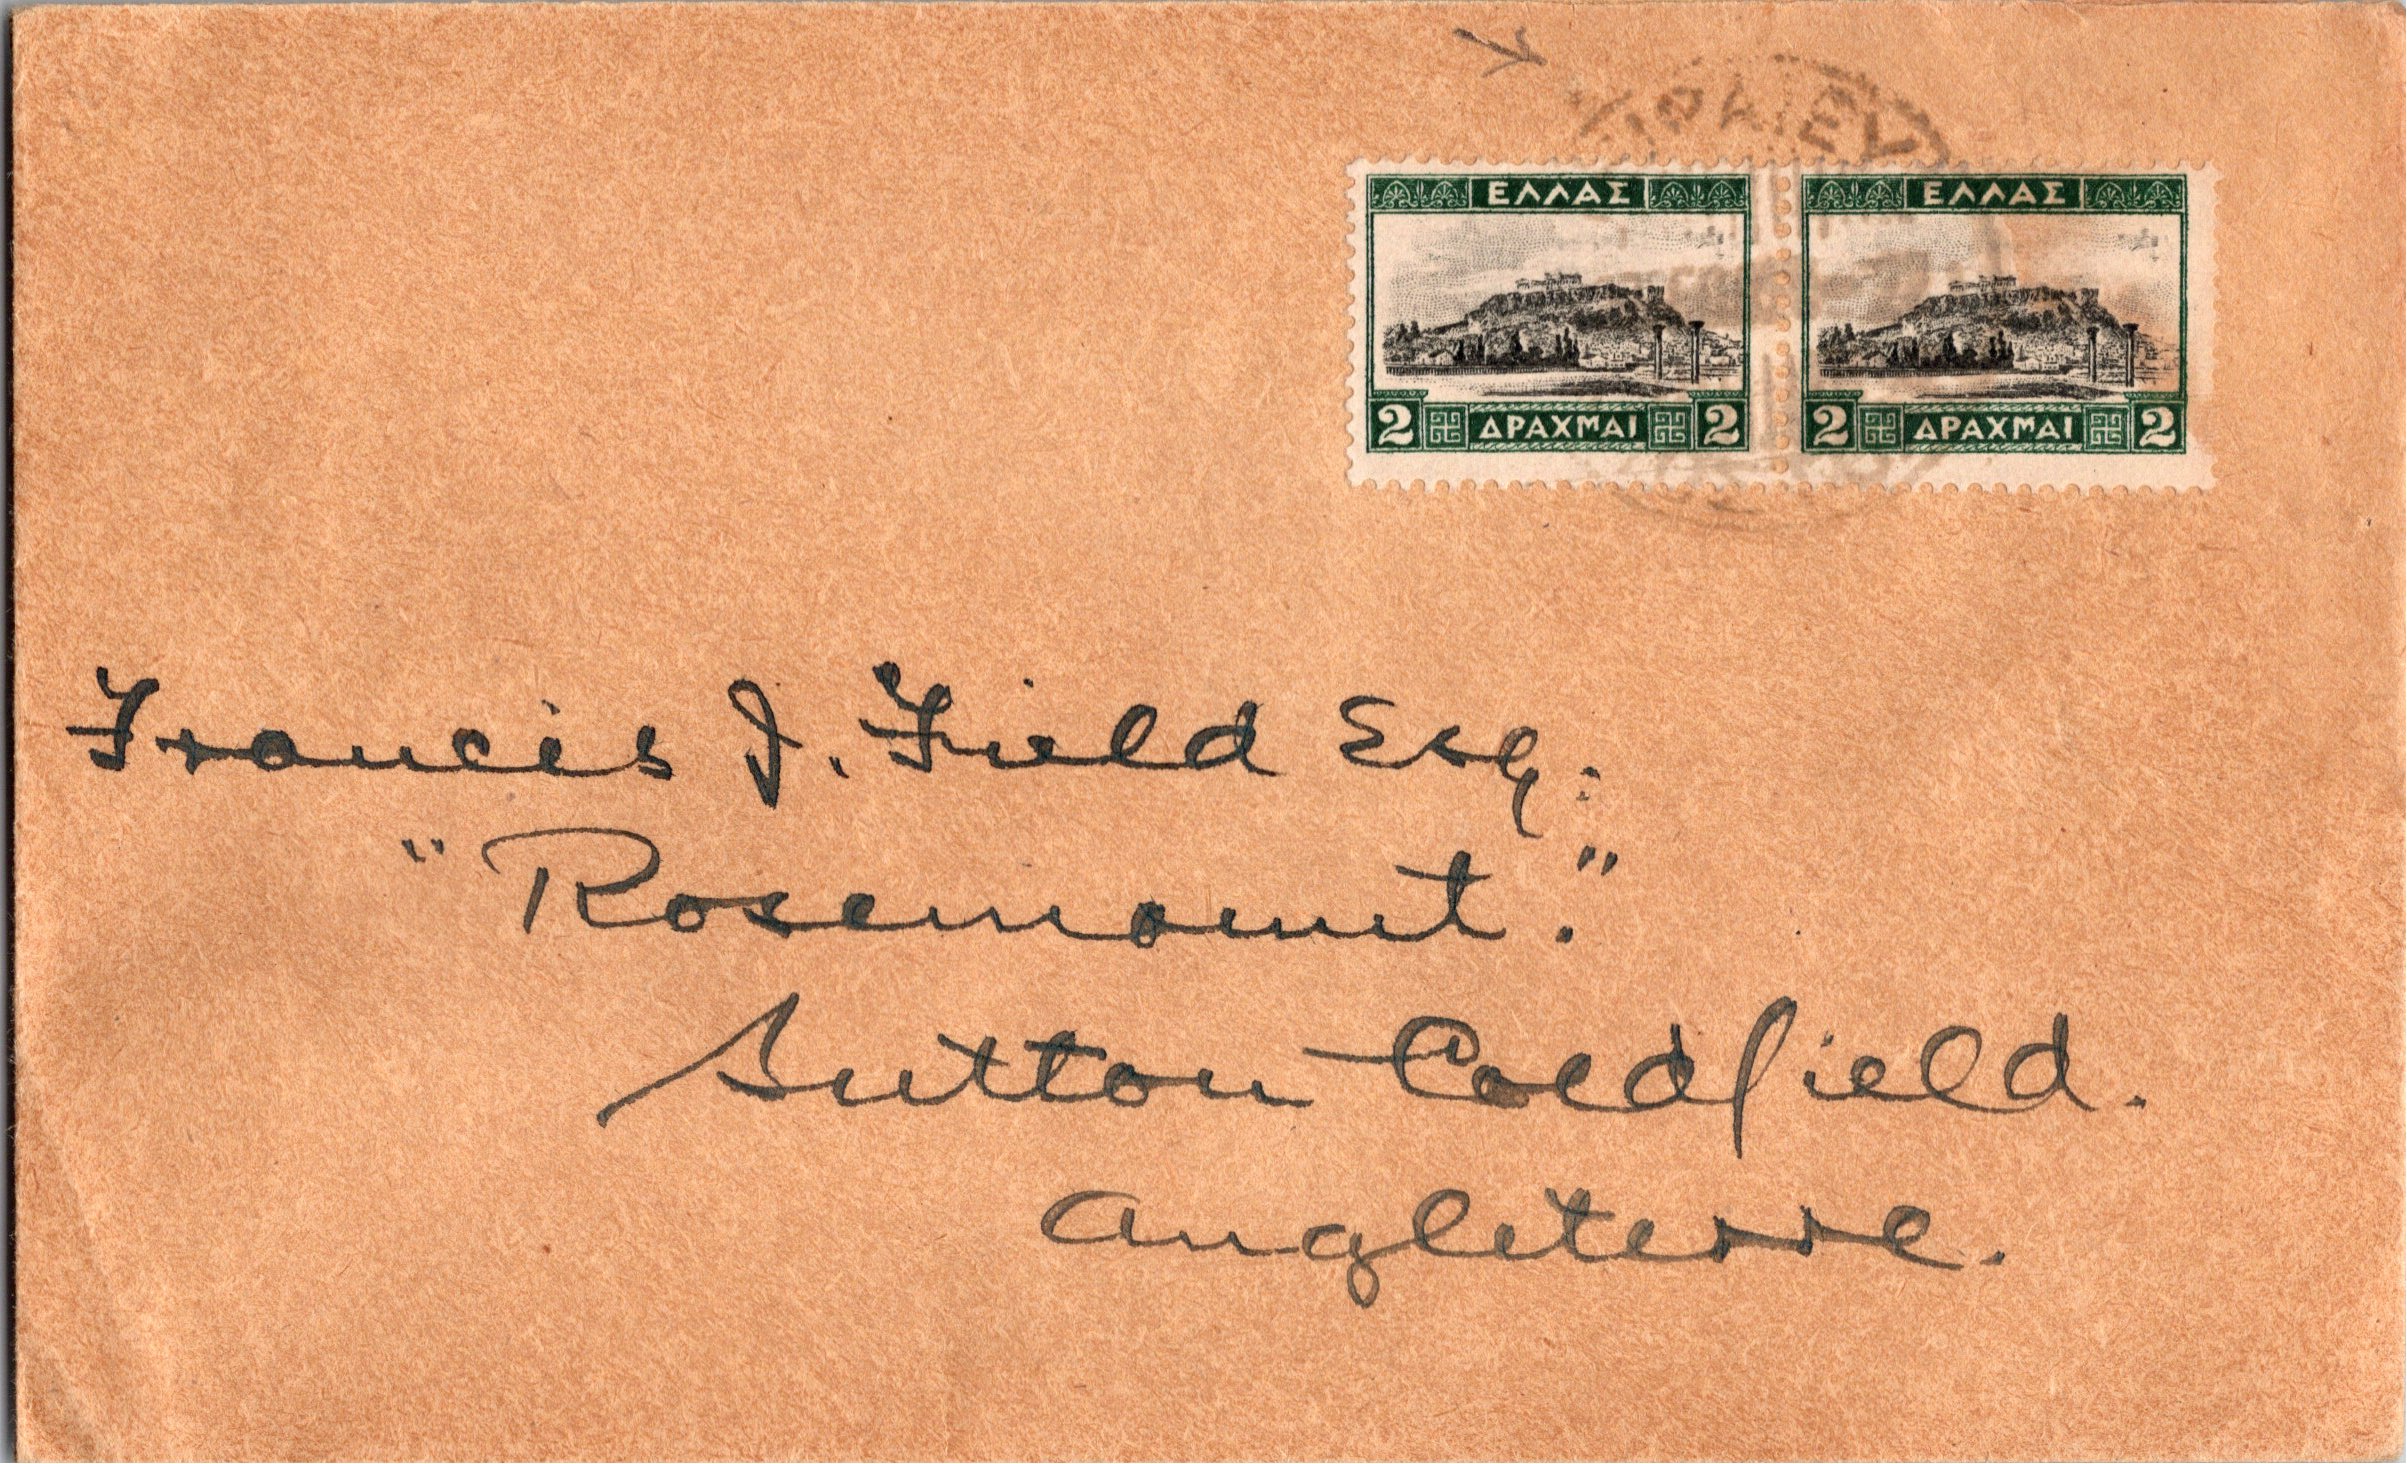 ΠΕΙΡΑΙΕΥ
ΕΛΛΑΣ
2 ΔΡΑΧΜΑΙ 2
ΕΛΛΑΣ
2 ΔΡΑΧΜΑΙ 2
Francis J. Field Esq:
"Rosemount."
Sutton Coldfield.
Angleterre.